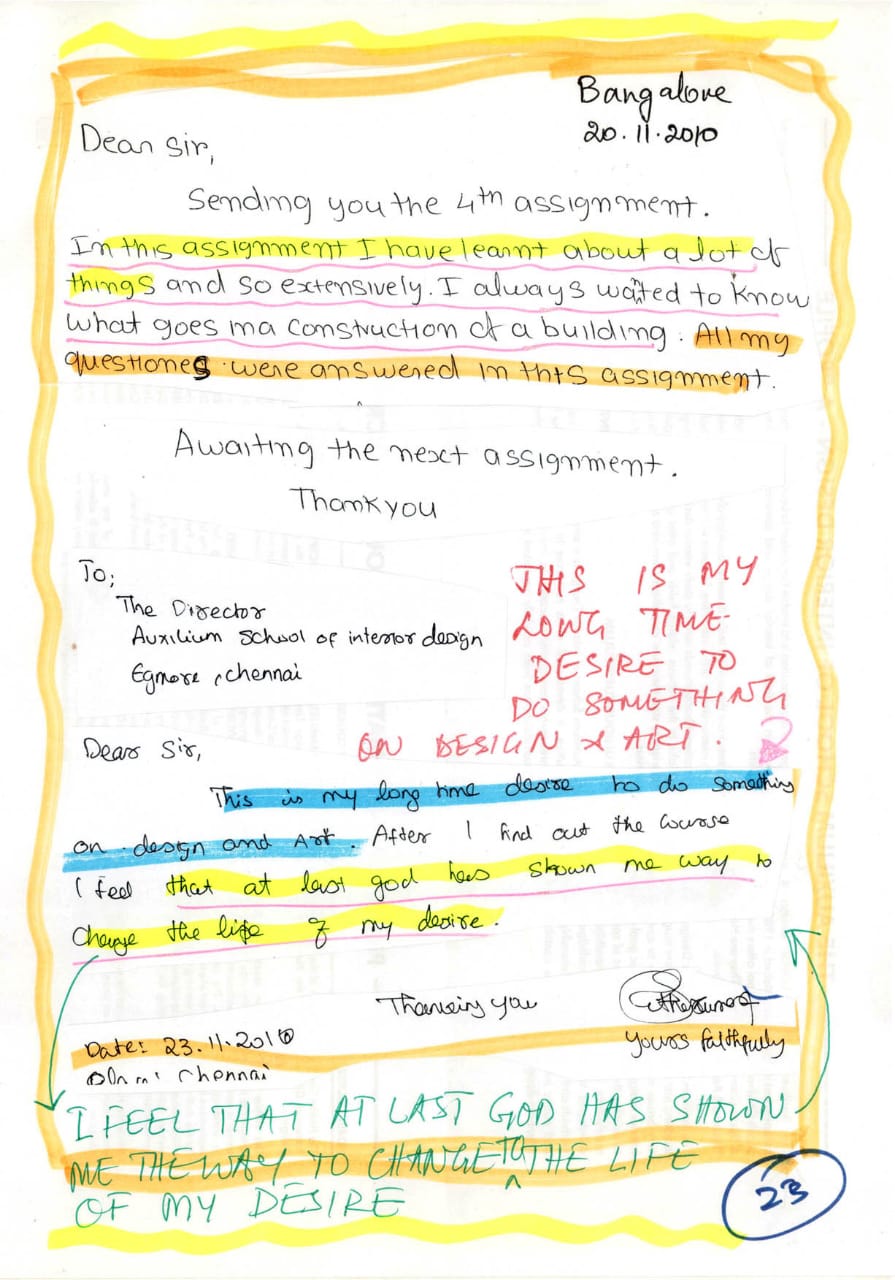 Bangalore
20.11.2010
Dear Sir,
Sending you the 4th assignment.
In this assignment I have learnt about a lot of
things and so extensively. I always wanted to know
what goes in a construction of a building. All my
questiones were answered in this assignment.
Awaiting the next assignment.
Thank you
To;
The Director
Auxilium School of interior design
Egmore, chennai
THIS IS MY
LONG TIME
DESIRE TO
DO SOMETHING
ON DESIGN & ART.
Dear Sir,
This is my long time desire to do something
on design and Art. After I find out the course
I feel that at last god has shown me way to
change the life of my desire.
Thanking you
Yours faithfully
Date: 23.11.2010
chennai
I FEEL THAT AT LAST GOD HAS SHOWN
ME THE WAY TO CHANGE TO THE LIFE
OF MY DESIRE
23